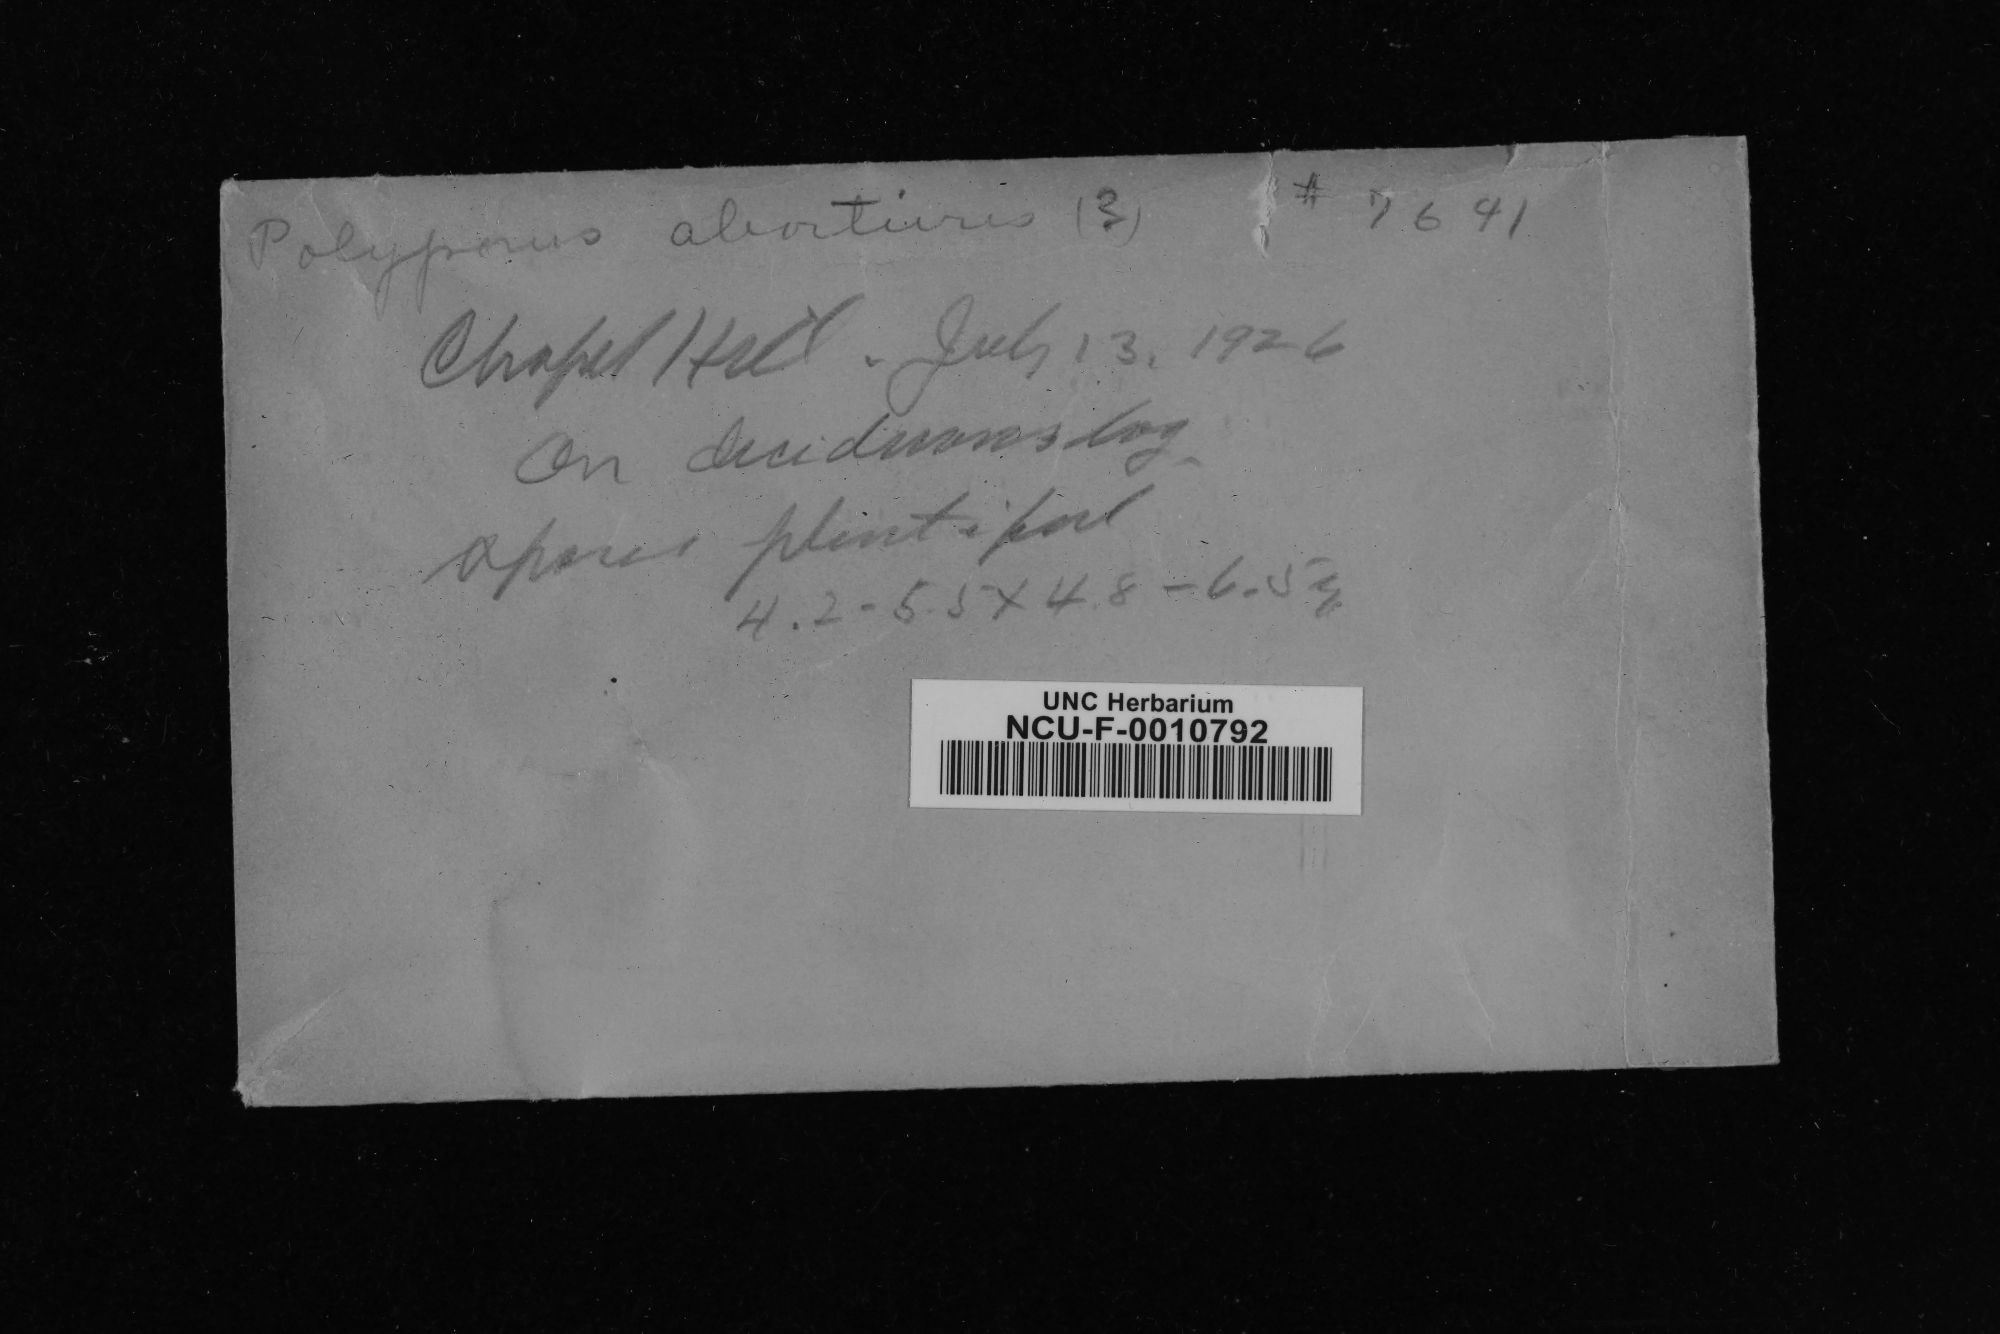 Polyporus abortivus (?) # 7641
Chapel Hill. July 13, 1926
On deciduous log.
Spores plentiful
4.2-5.5 X 4.8-6.5
UNC Herbarium
NCU-F-0010792